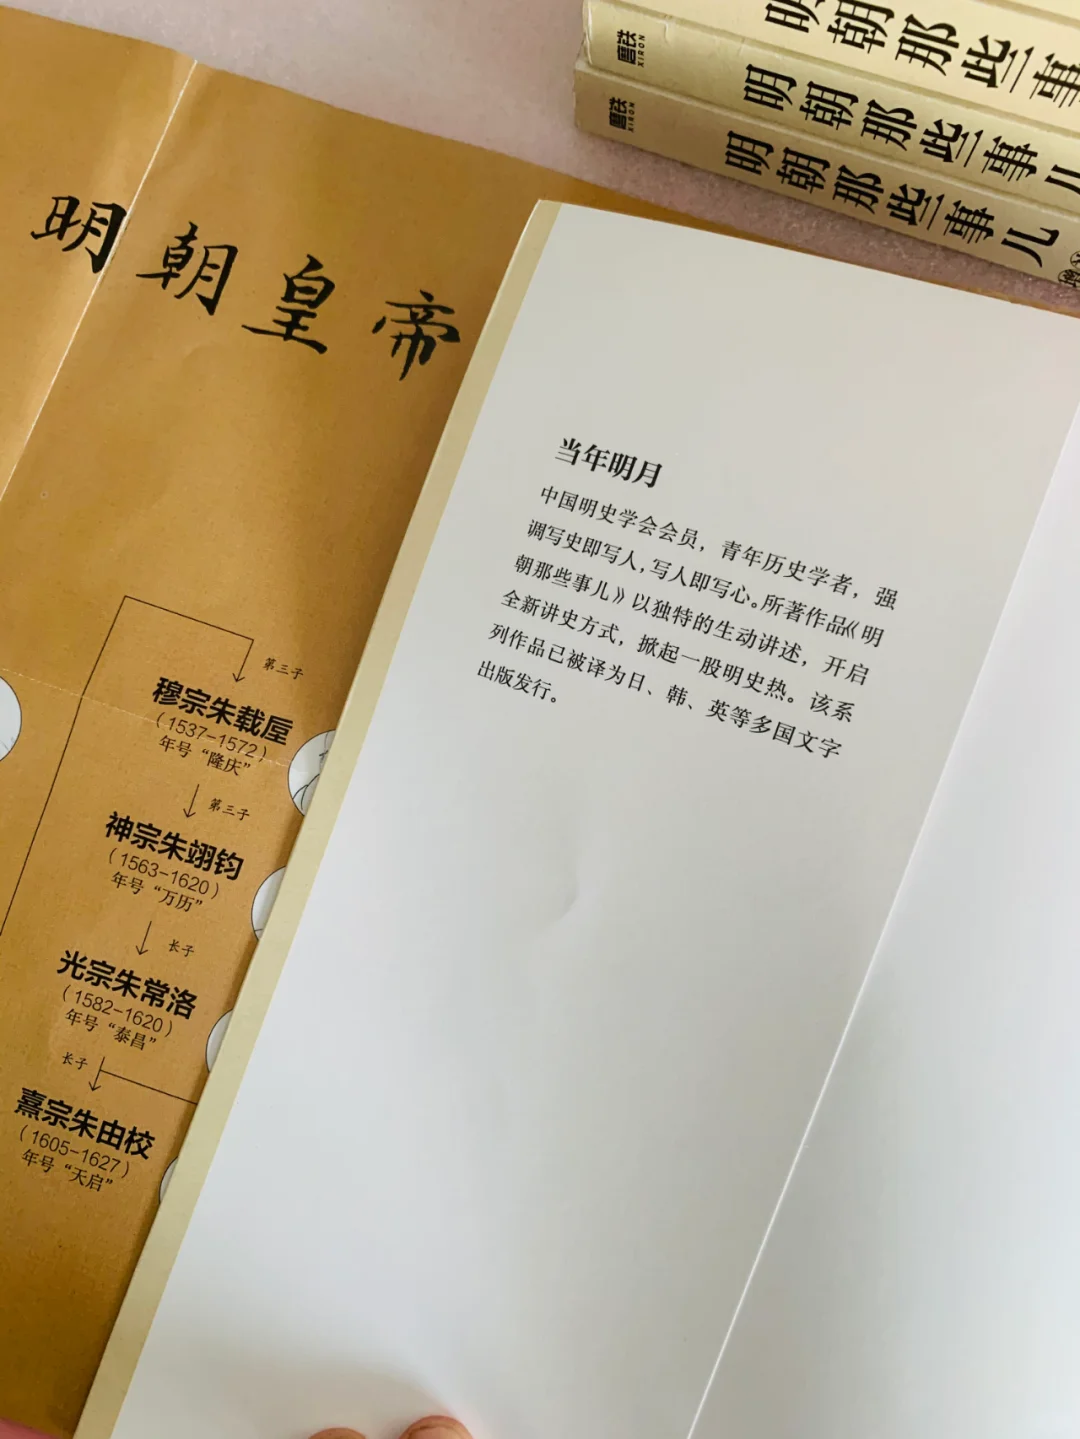 明朝那些事
磨铁
XIRON
明朝那些事儿
磨铁
XIRON
明朝那些事儿
明朝皇帝
当年明月
中国明史学会会员，青年历史学者，强
调写史即写人，写人即写心。所著作品《明
朝那些事儿》以独特的生动讲述，开启
全新讲史方式，掀起一股明史热。该系
列作品已被译为日、韩、英等多国文字
出版发行。
第三子
穆宗朱载垕
（1537-1572）
年号“隆庆”
第三子
神宗朱翊钧
（1563-1620）
年号“万历”
长子
光宗朱常洛
（1582-1620）
年号“泰昌”
长子
熹宗朱由校
（1605-1627）
年号“天启”